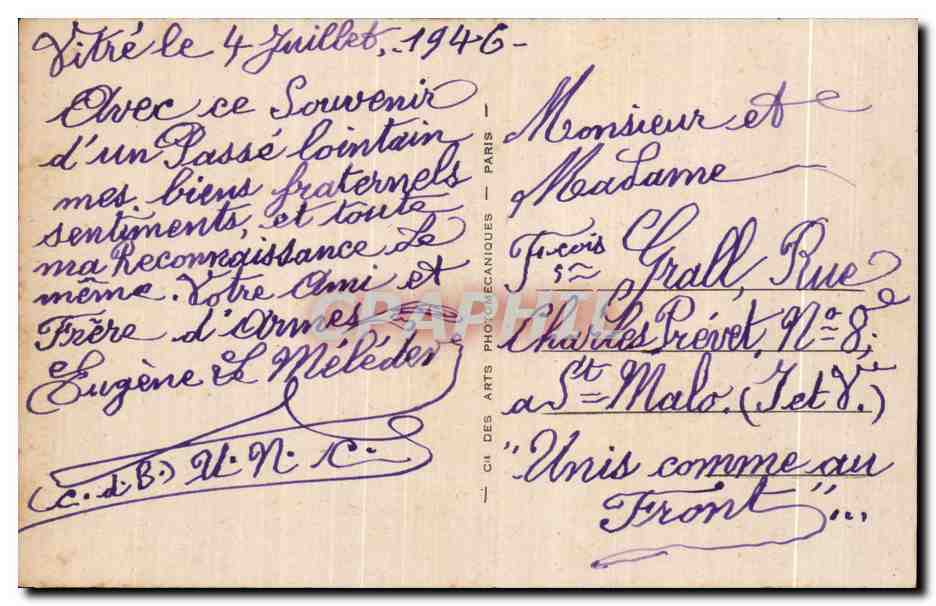 Vitré le 4 Juillet, 1946-
Avec ce Souvenir
d'un Passé lointain
mes biens fraternels
sentiments, et toute
ma Reconnaissance de
même. Votre Ami et
Frère d'Armes
Eugène Le Méléder
(C. d. B.) U. N. C.
— Cie DES ARTS PHOTOMECANIQUES — PARIS —
Monsieur et
Madame
Fcois Grall, Rue
Charles Prévet, No 8,
a St Malo. (I et V.)
"Unis comme au
Front"...
CPAPHIL